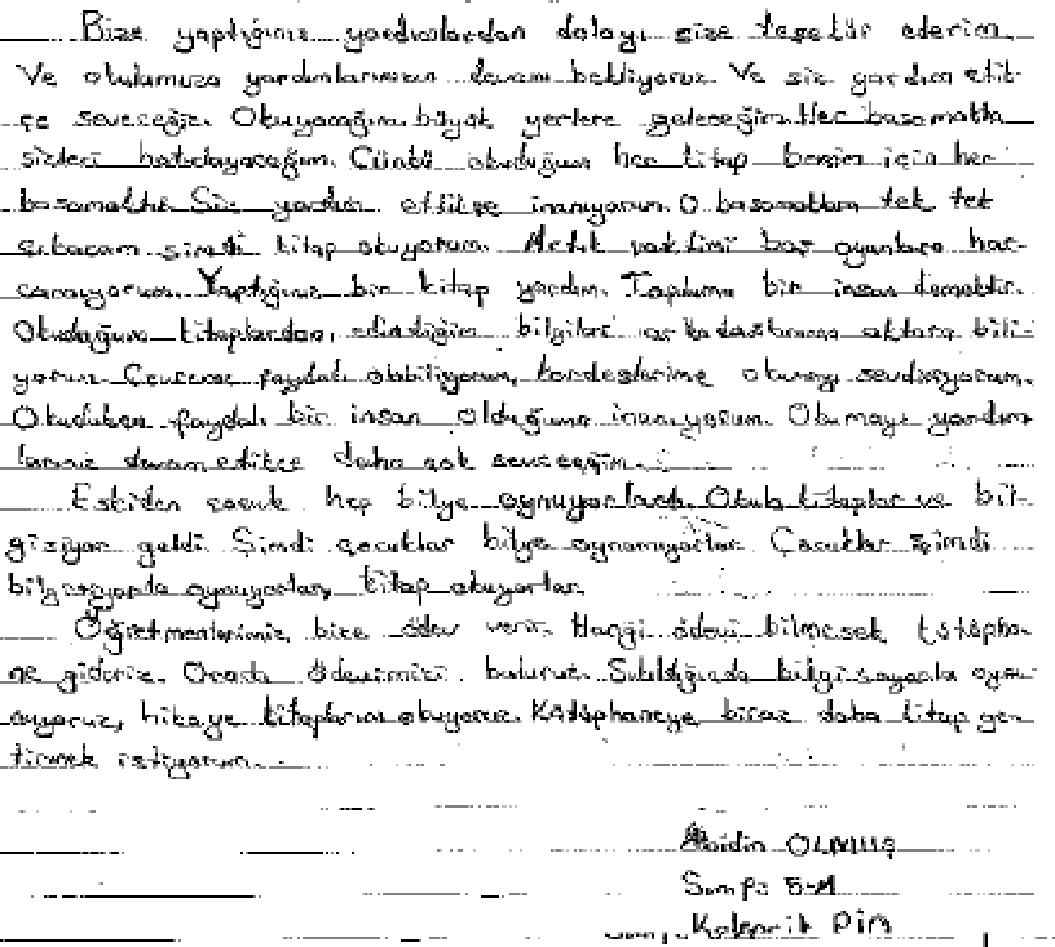 Bize yaptığınız yardımlardan dolayı size teşekür ederim.
Ve okulumuza yardımlarınızın devamı bekliyoruz. Ve siz yardım ettik-
çe seveceğiz. Okuyacağım büyük yerlere geleceğim. Her basamakta
sizleri hatırlayacağım. Çünkü okuduğum her kitap benim için her
basamaktır. Siz yardım ettikçe inanıyorum. O basamakları tek tek
çıkacam şimdi kitap okuyorum. Artık vaktimi boş oyunlara har-
camıyorum. Yaptığınız bir kitap yardım. Topluma bir insan demektir.
Okuduğum kitaplardan, edindiğim bilgileri arkadaşlarıma aktara bili-
yorum. Çevreme faydalı olabiliyorum, kardeşlerime okumayı sevdiriyorum.
Okudukça faydalı bir insan olduğuma inanıyorum. Okumayı yardım
larınız devam ettikçe daha çok seveceğim.
Eskiden çocuk hep bilye oynuyorlardı. Okula kitaplar ve bil-
gisiyar geldi. Şimdi çocuklar bilye oynamıyorlar. Çocuklar şimdi
bilgisayarla oynuyorlar, kitap okuyorlar.
Öğretmenlerimiz, bize ödev verir. Hangi ödevi bilmesek kütüpha-
ne gideriz. Orada ödevimizi buluruz. Sıkıldığımızda bilgisayarla oynu-
oyoruz, hikaye kitaplarını okuyoruz. Kütüphaneye biraz daha kitap ge-
tirmek istiyorum.
Abidin OLMUŞ
Sınıfı: 5-A